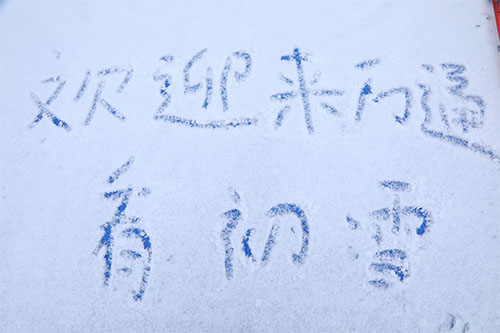 欢迎来万通
看初雪